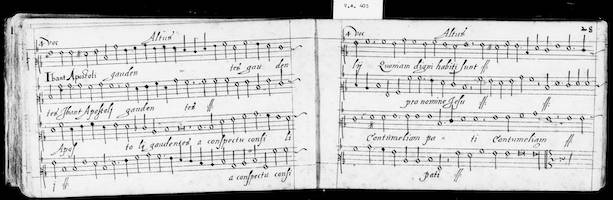 V.a. 405
4 Voc Altus
Ibant Apostoli gauden tes gau den
tes Ibant Apostoli gauden tes ff
Apos to li gaudentes a conspectu consi li
j ff a conspectu consi
4 Voc Altus 28
lij Quoniam digni habiti sunt ff
pro nomine Jesu ff ff
Contumeliam pa ti Contumeliam ff
pati ff